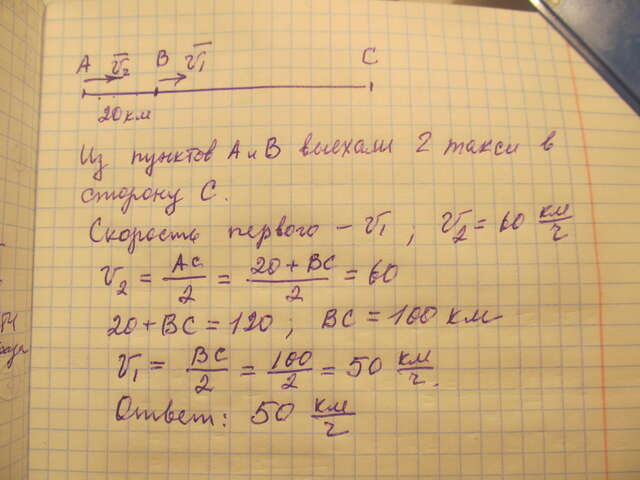 A v̅₂ B v̅₁ C
20км
Из пунктов A и B выехали 2 такси в
сторону C.
Скорость первого – v₁ ; v₂ = 60 км/ч
v₂ = AC/2 = 20 + BC/2 = 60
20 + BC = 120 ; BC = 100 км
v₁ = BC/2 = 100/2 = 50 км/ч.
Ответ: 50 км/ч